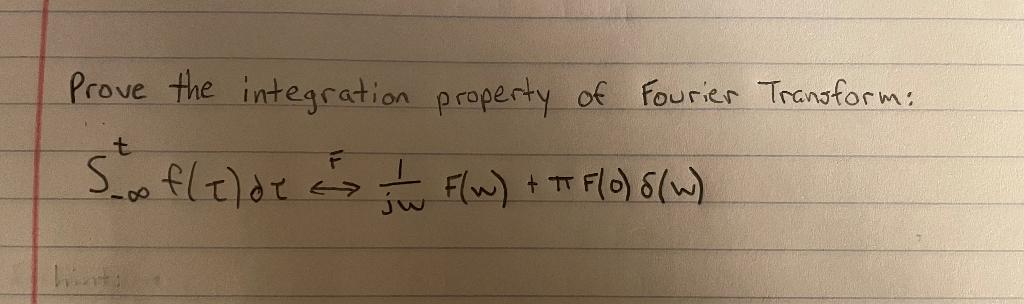 Prove the integration property of Fourier Transform:
∫_{-∞}^{t} f(τ)dτ ⟷^{F} \frac{1}{jw} F(w) + π F(0) δ(w)
hint: